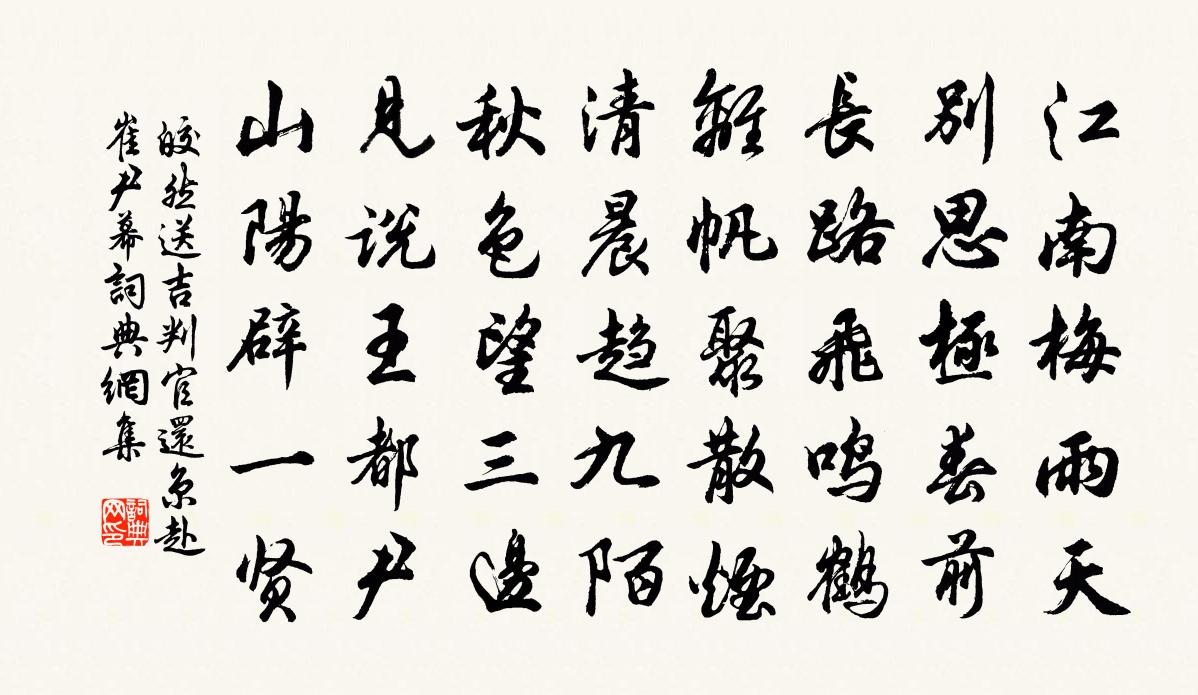 江南梅雨天
別思極春前
長路飛鳴鶴
離帆聚散煙
清晨趨九陌
秋色望三邊
見說王都尹
山陽辟一賢
皎然送吉判官還京赴
崔尹幕詞典網集
詞典網印